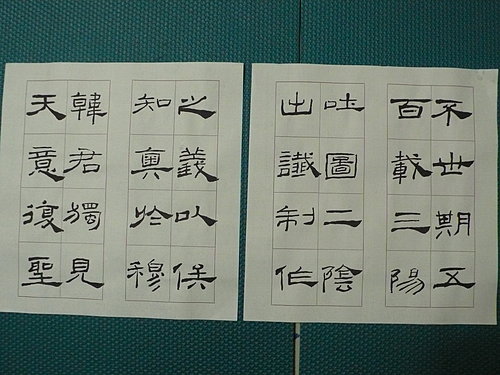 不世期五
百載三陽
吐圖二陰
出讖制作
之義以俟
知奧於穆
韓君獨見
天意復聖